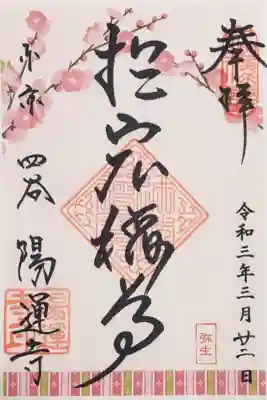 奉拝
令和三年三月廿二日
弥生
於岩稲荷
東京 四谷 陽運寺